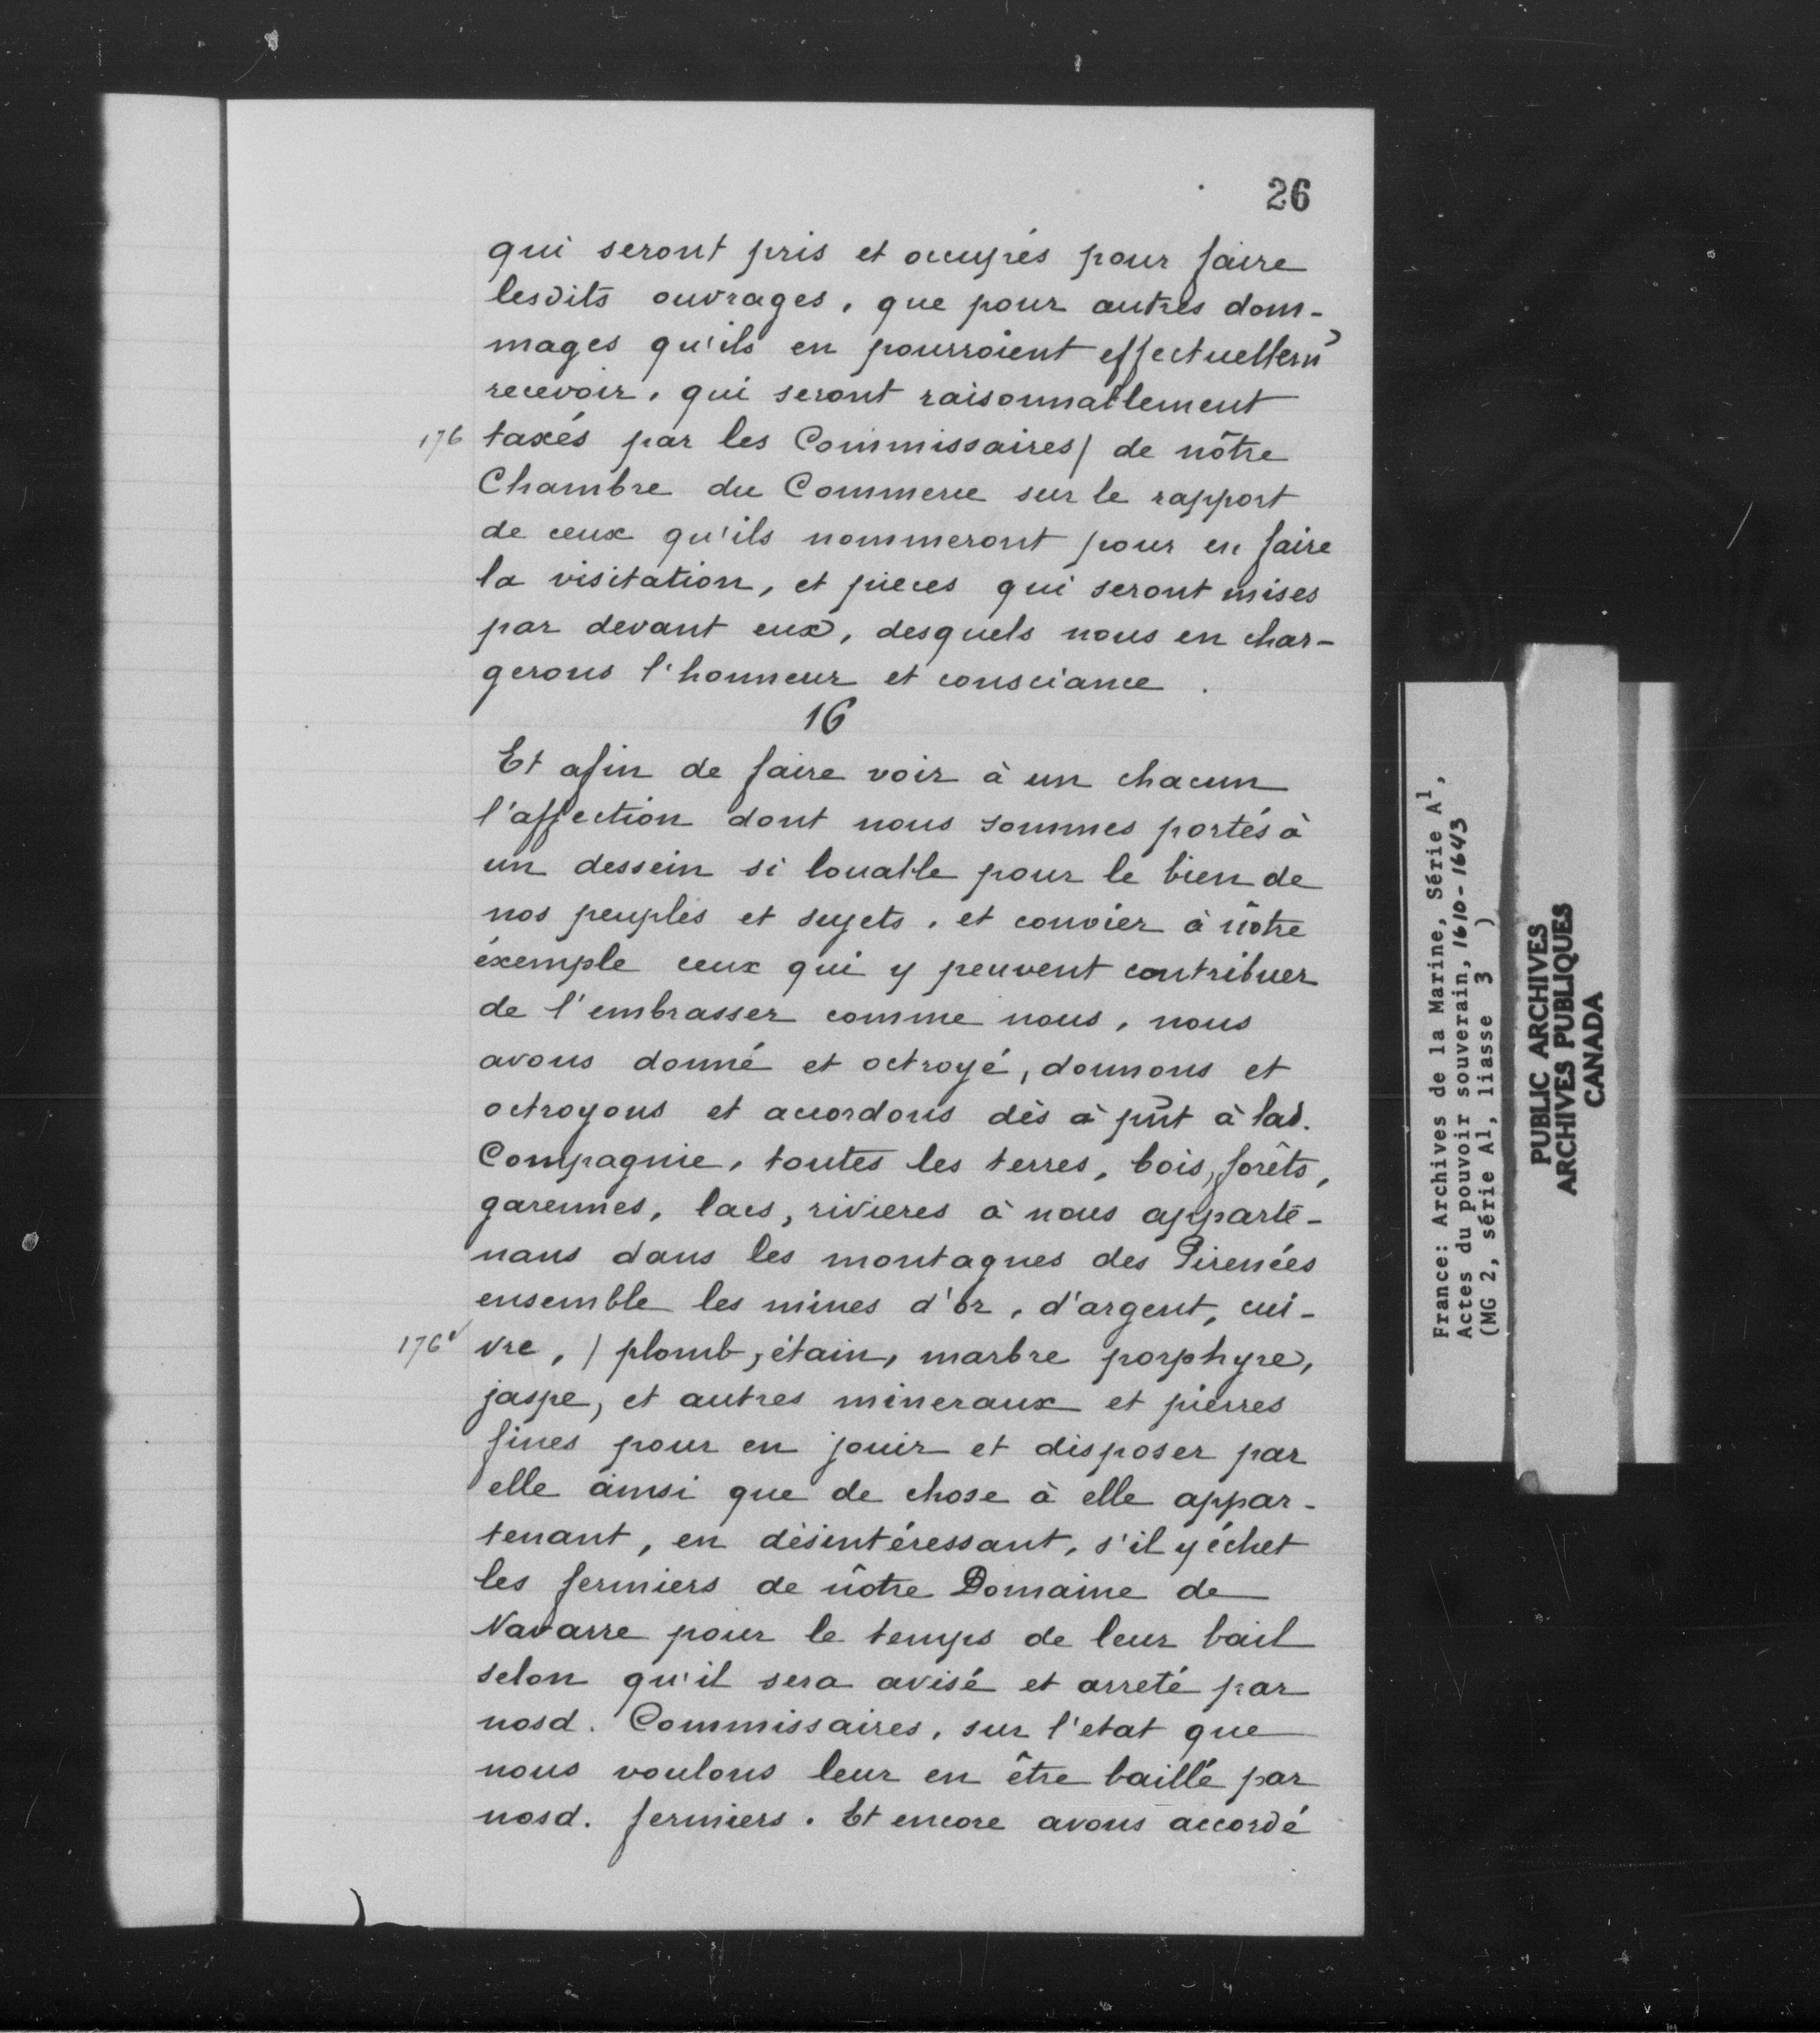 26
qui seront pris et occupés pour faire
lesdits ouvrages, que pour autres dom-
mages qu'ils en pourroient effectuellem̃
recevoir, qui seront raisonnablement
176 taxés par les Commissaires/ de nôtre
Chambre du Commerce sur le rapport
de ceux qu'ils nommeront pour en faire
la visitation, et pieces qui seront mises
par devant eux, desquels nous en char-
gerons l'honneur et consciance.
16
Et afin de faire voir à un chacun
l'affection dont nous sommes portés à
un dessein si louable pour le bien de
nos peuples et sujets, et convier à nôtre
éxemple ceux qui y peuvent contribuer
de l'embrasser comme nous, nous
avons donné et octroyé, donnons et
octroyons et accordons dès à pn̄t à lad.
Compagnie, toutes les terres, bois, forêts,
garennes, lacs, rivieres à nous apparte-
nans dans les montagnes des Pirenées
ensemble les mines d'or, d'argent, cui-
176v vre, / plomb, étain, marbre porphyre,
jaspe, et autres mineraux et pierres
fines pour en jouir et disposer par
elle ainsi que de chose à elle appar-
tenant, en désintéressant, s'il y échet
les fermiers de nôtre Domaine de
Navarre pour le temps de leur bail
selon qu'il sera avisé et arreté par
nosd. Commissaires, sur l'etat que
nous voulons leur en être baillé par
nosd. fermiers. Et encore avons accordé
France: Archives de la Marine, Série A1,
Actes du pouvoir souverain, 1610-1643
(MG 2, série A1, liasse 3 )
PUBLIC ARCHIVES
ARCHIVES PUBLIQUES
CANADA